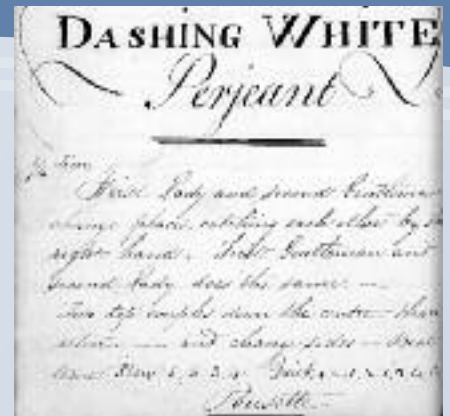 DASHING WHITE
Perjeant
First Lady and second Gentleman
change places, catching each other by the
right hand. First Gentleman and
second Lady does the same —
Two top couples down the centre – then
return — and change sides –
Slow 1, 2, 3, 4
Pousette –